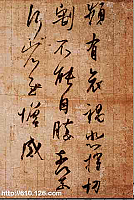 頻有哀禍悲摧切
割不能自勝奈何
奈何省慰增感
http://610.126.com